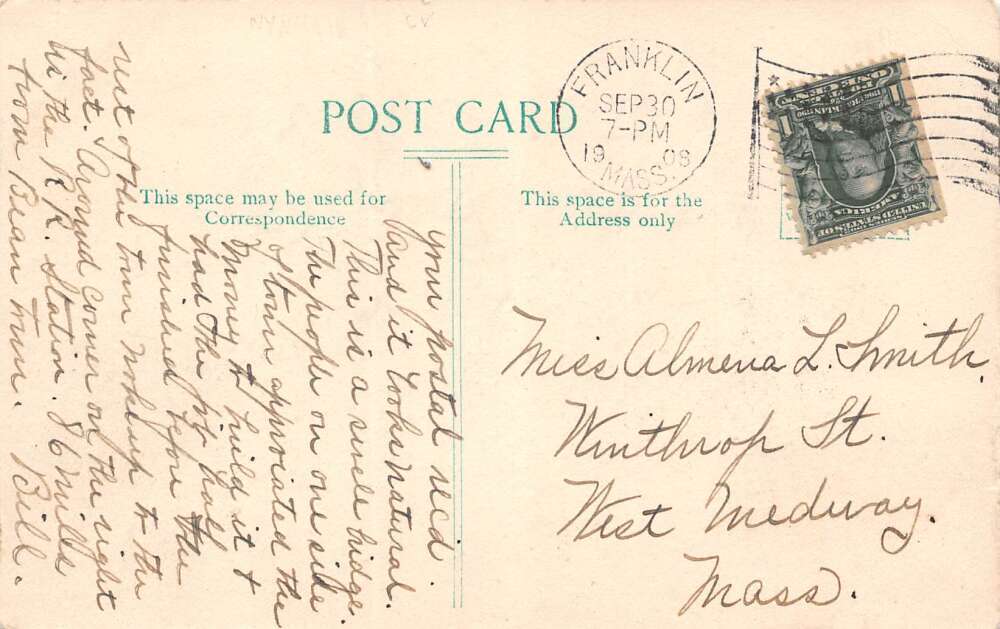 POST CARD
This space may be used for
Correspondence
This space is for the
Address only
FRANKLIN
SEP 30
7-PM
1908
MASS.
ONE CENT
1
1
UNITED STATES OF
AMERICA
your postal recd.
and it looks natural.
This is a bridge.
The people on one side
of town approiated the
money to build it &
had the job half
finished before the
rest of the town woke up to the
fact. Around corner on the right
is the R.R. Station. 86 miles
from Bean town. Bill.
Miss Almena L. Smith.
Winthrop St.
West Medway.
Mass.